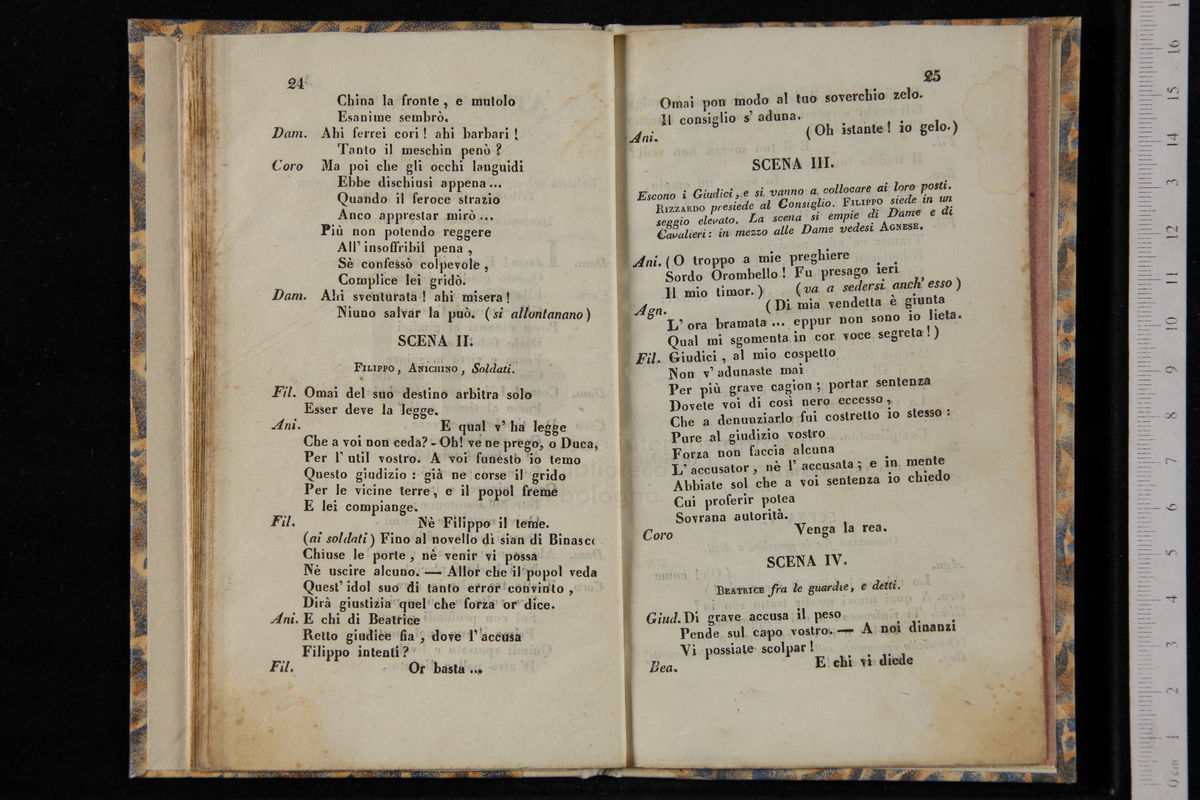 24
China la fronte, e mutolo
Esanime sembrò.
Dam. Ahi ferrei cori! ahi barbari!
Tanto il meschin penò?
Coro Ma poi che gli occhi languidi
Ebbe dischiusi appena...
Quando il feroce strazio
Anco apprestar mirò...
Più non potendo reggere
All' insoffribil pena,
Sè confessò colpevole,
Complice lei gridò.
Dam. Ahi sventurata! ahi misera!
Niuno salvar la può. (si allontanano)
SCENA II.
FILIPPO, ANICHINO, Soldati.
Fil. Omai del suo destino arbitra solo
Esser deve la legge.
Ani. E qual v' ha legge
Che a voi non ceda? - Oh! ve ne prego, o Duca,
Per l' util vostro. A voi funesto io temo
Questo giudizio: già ne corse il grido
Per le vicine terre, e il popol freme
E lei compiange.
Fil. Nè Filippo il teme.
(ai soldati) Fino al novello dì sian di Binasco
Chiuse le porte, nè venir vi possa
Nè uscire alcuno. — Allor che il popol veda
Quest' idol suo di tanto error convinto,
Dirà giustizia quel che forza or dice.
Ani. E chi di Beatrice
Retto giudice fia, dove l' accusa
Filippo intenti?
Fil. Or basta...
25
Omai pon modo al tuo soverchio zelo.
Il consiglio s' aduna.
Ani. (Oh istante! io gelo.)
SCENA III.
Escono i Giudici, e si vanno a collocare ai loro posti.
RIZZARDO presiede al Consiglio. FILIPPO siede in un
seggio elevato. La scena si empie di Dame e di
Cavalieri: in mezzo alle Dame vedesi AGNESE.
Ani. (O troppo a mie preghiere
Sordo Orombello! Fu presago ieri
Il mio timor.) (va a sedersi anch' esso)
Agn. (Di mia vendetta è giunta
L' ora bramata... eppur non sono io lieta.
Qual mi sgomenta in cor voce segreta!)
Fil. Giudici, al mio cospetto
Non v' adunaste mai
Per più grave cagion; portar sentenza
Dovete voi di così nero eccesso,
Che a denunziarlo fui costretto io stesso:
Pure al giudizio vostro
Forza non faccia alcuna
L' accusator, nè l' accusata; e in mente
Abbiate sol che a voi sentenza io chiedo
Cui proferir potea
Sovrana autorità.
Coro Venga la rea.
SCENA IV.
BEATRICE fra le guardie, e detti.
Giud. Di grave accusa il peso
Pende sul capo vostro. — A noi dinanzi
Vi possiate scolpar!
Bea. E chi vi diede